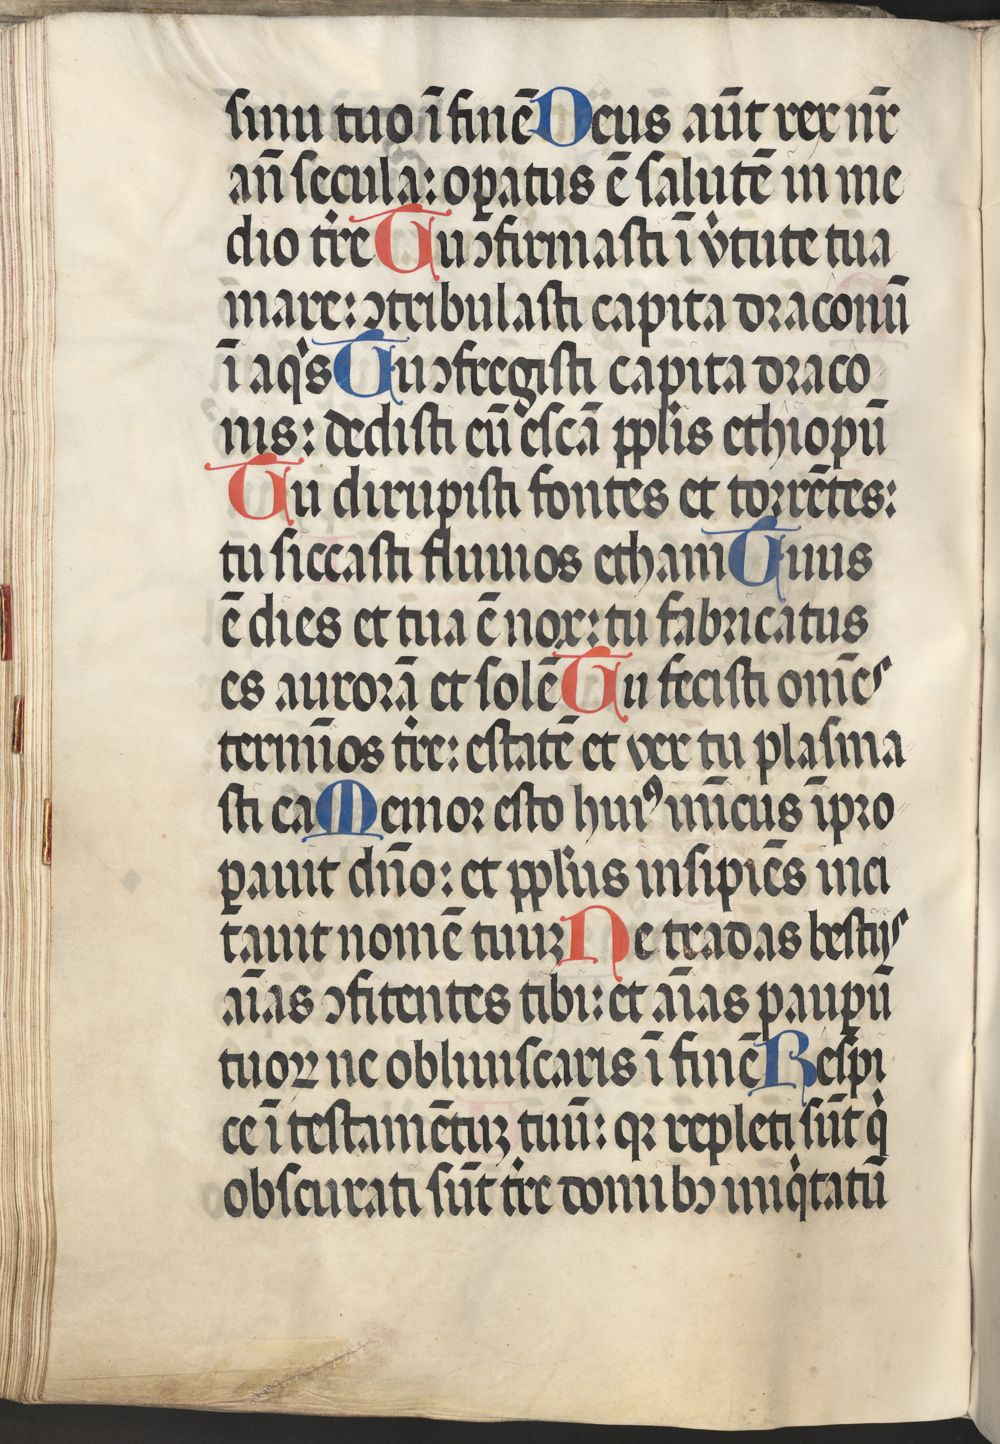 sinu tuo ī finē Deus aūt rex nr̄
an̄ secula: oꝑatus ē salutē in me
dio tr̄re Tu ↄfirmasti ī v̓tute tua
mare: ↄtribulasti capita draconū
ī aqͥs Tu ↄfregisti capita draco
nis: dedisti eū escā pplis ethiopū
Tu dirupisti fontes et torrētes:
tu siccasti fluuios etham Tuus
ē dies et tua ē nox: tu fabricatus
es aurorā et solē Tu fecisti om̄es
termīos tr̄re: estatē et ver tu plasma
sti ea Memor esto huiꝰ inīcus īpro
ꝑauit dn̄o: et pplus insipiēs inci
tauit nomē tuuꝫ Ne tradas bestijs
aīas ↄfitentes tibi: et aīas pauꝑū
tuoꝝ ne obliuiscaris ī finē Respi
ce ī testamētuꝫ tuū: qꝛ repleti sūt qͥ
obscurati sūt tr̄re domibↄ iniqͥtatū